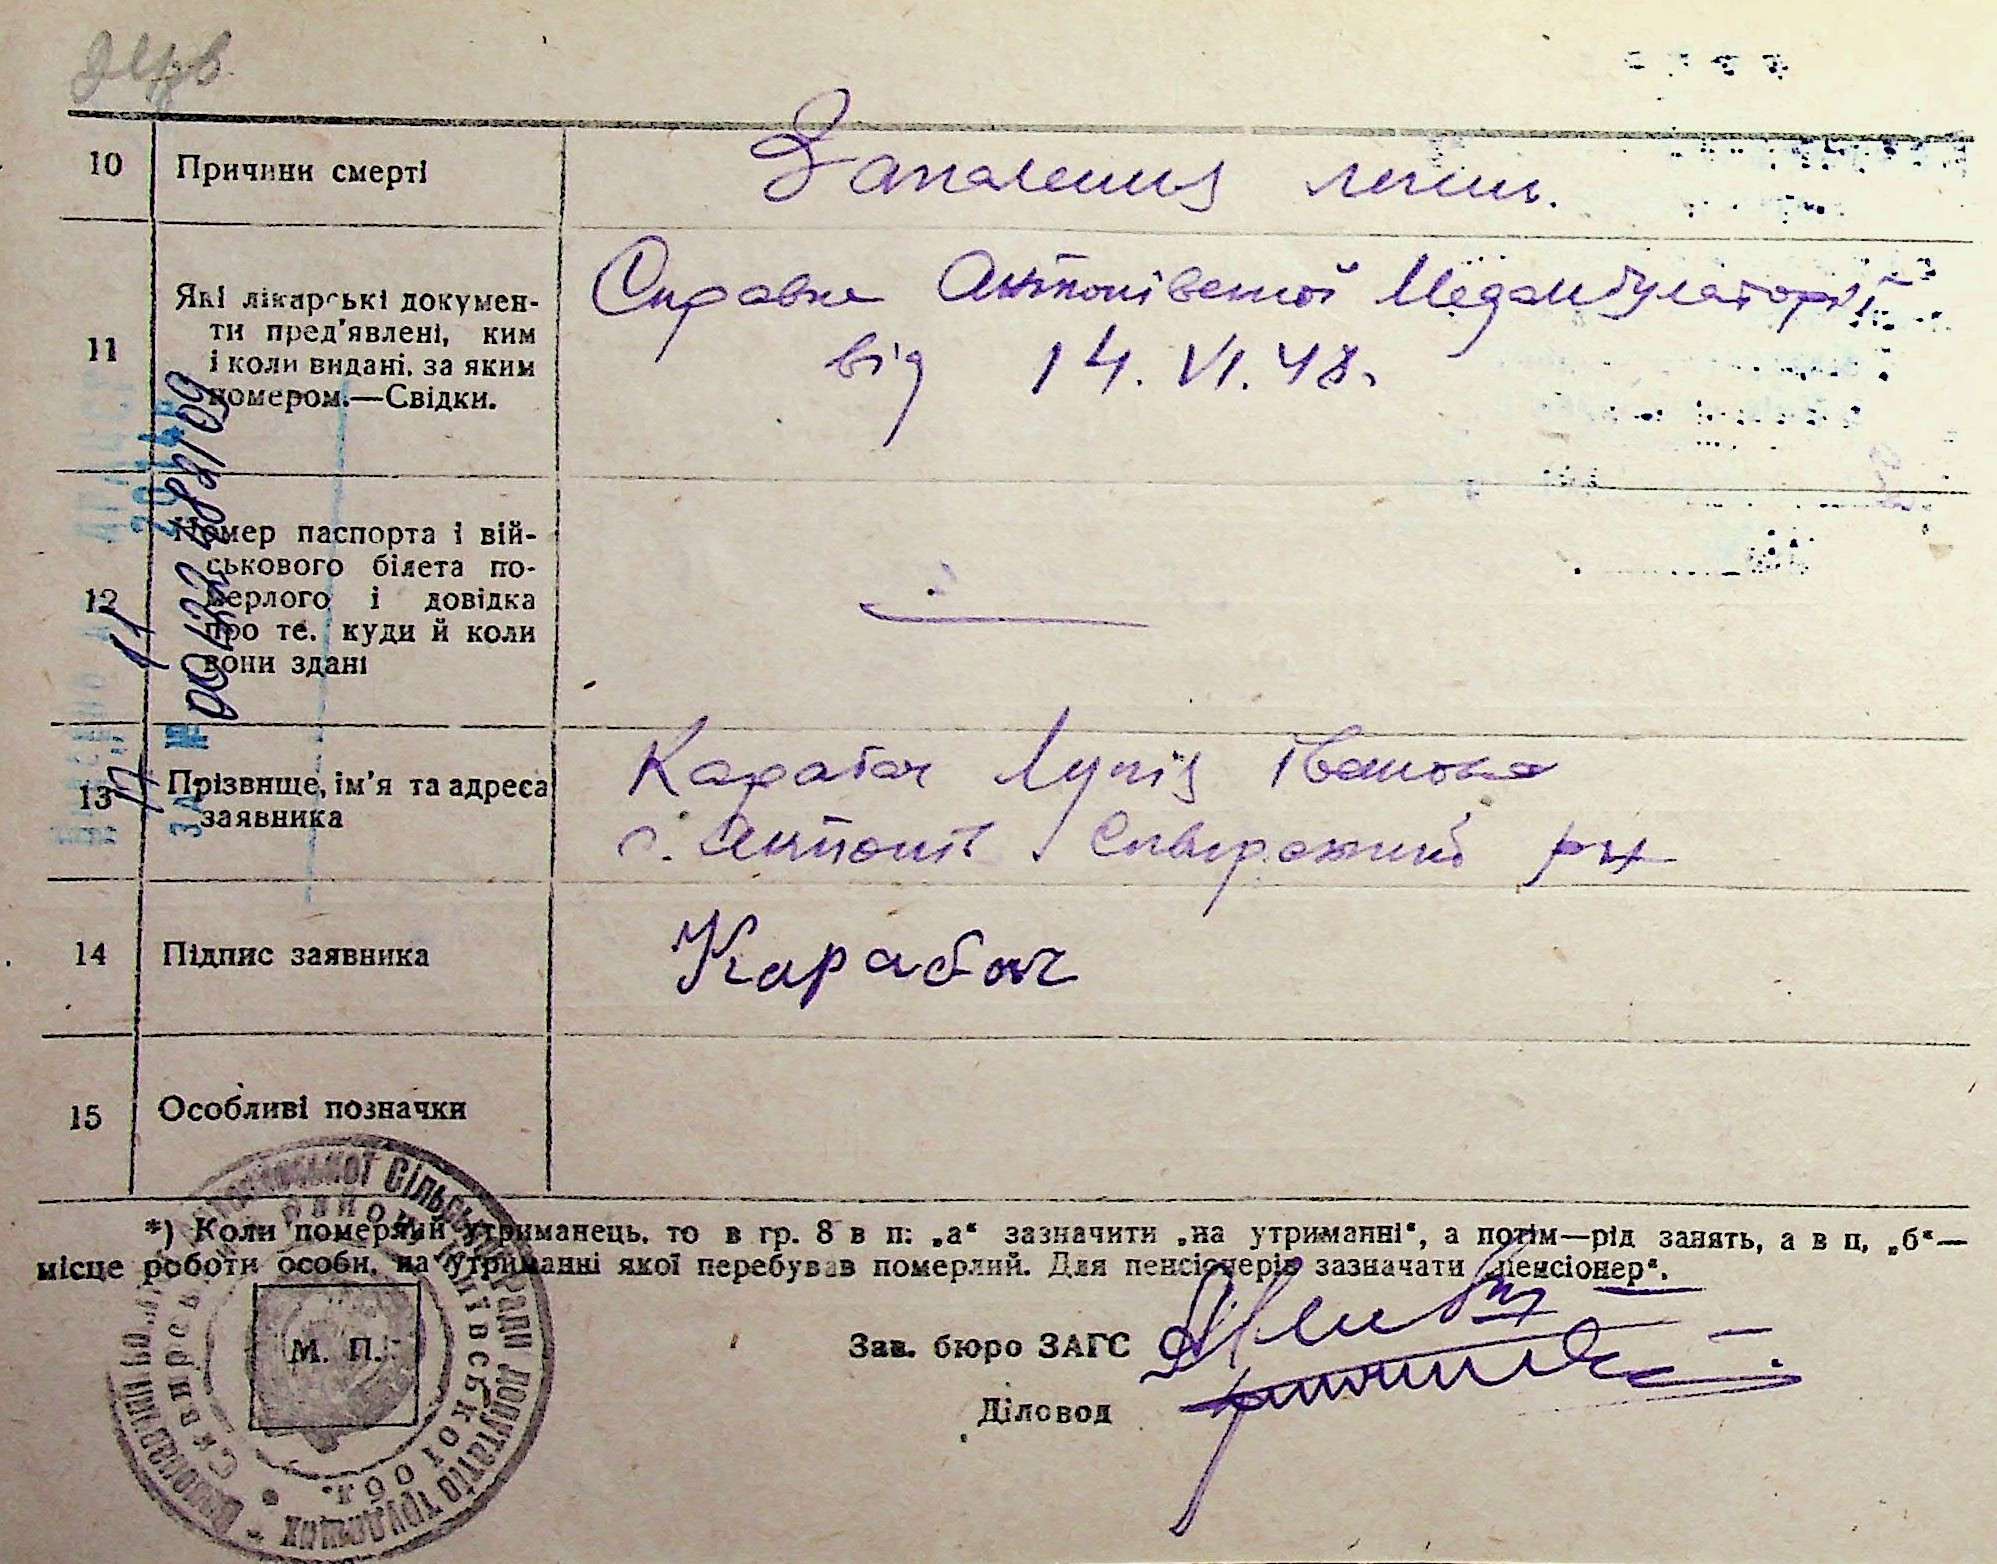 10 Причини смерті Запалення легень.
11 Які лікарські докумен-
ти пред'явлені, ким
і коли видані, за яким
номером.—Свідки.
Справка Антонівської Медамбулаторії
від 14.VI.48.
12 Номер паспорта і вій-
ськового білета по-
мерлого і довідка
про те, куди й коли
вони здані
13 Прізвище, ім'я та адреса
заявника
Карабач Івановна
с. Антонів Сквирський р-н
14 Підпис заявника Карабач
15 Особливі позначки
*) Коли померлий утриманець, то в гр. 8 в п: „а“ зазначити „на утриманні“, а потім—рід занять, а в п. „б“—
місце роботи особи, на утриманні якої перебував померлий. Для пенсіонерів зазначати „пенсіонер“.
Зав. бюро ЗАГС
Діловод
М. П.
Сільської Ради Депутатів Трудящих
Сквирськ району Київської Обл.
00133482109
ЗА №